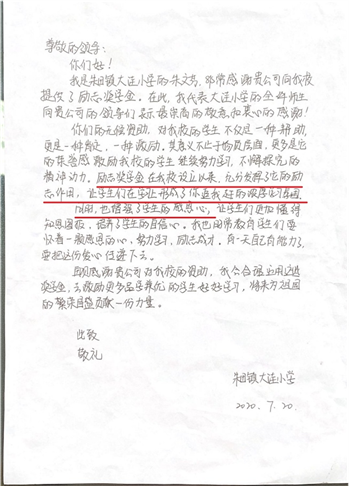 尊敬的领导：
你们好！
我是朱旺镇大连小学的朱文芳，非常感谢贵公司向我校
提供了励志奖学金。在此，我代表大连小学的全体师生
向贵公司的领导们表示最崇高的敬意和衷心的感谢！
你们的无偿资助，对我校的学生不仅是一种帮助，
更是一种肯定，一种激励。其意义不止于物质层面，更多是它
的 激励我校的学生继续努力学习，不懈探究的
精神动力。励志奖学金在我校设立以来，充分发挥了它的励
志作用，让学生们在学业上形成了你追我赶的浓厚学习氛围
同时，也增强了学生的感恩心，让学生们更加懂得
知恩图报，培养了学生的自信心。我也时常教育学生们要
怀着一颗感恩的心，努力学习，励志成才。有一天自己有能力了，
要把这份爱心传递下去。
再次感谢贵公司对我校的资助，我会合理运用这笔
奖学金，去激励更多品学兼优的学生好好学习，将来为祖国
的繁荣昌盛贡献一份力量。
此致
敬礼
朱旺镇大连小学
2020.7.20.